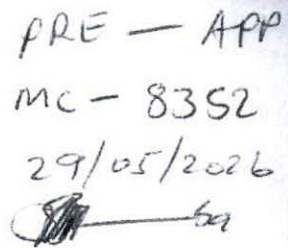 PRE — APP
MC - 8352
29/05/2026